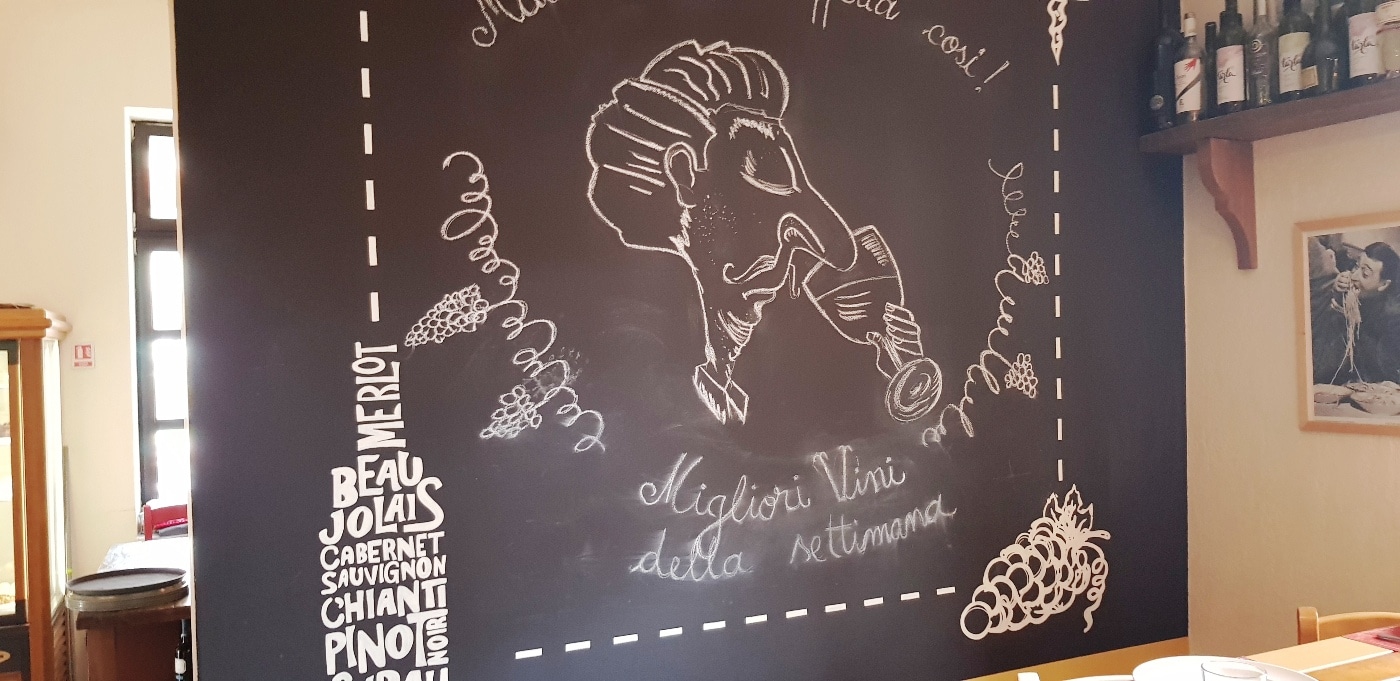 così!
MERLOT
BEAU
JOLAIS
CABERNET
SAUVIGNON
CHIANTI
PINOT NOIR
Migliori Vini
della settimana